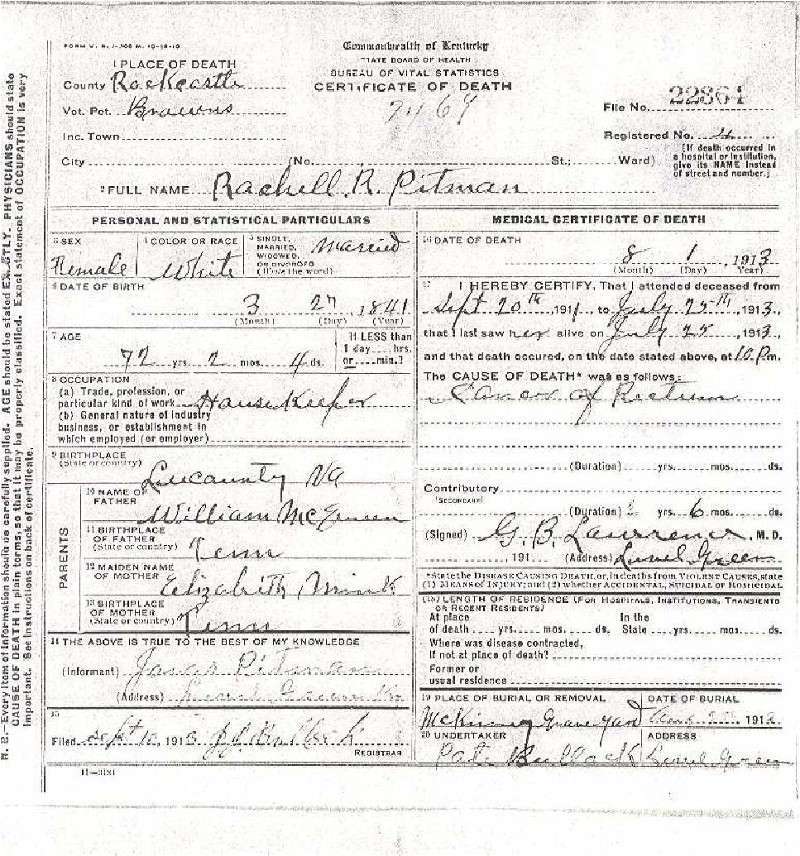 FORM V. S.
Commonwealth of Kentucky
STATE BOARD OF HEALTH
BUREAU OF VITAL STATISTICS
CERTIFICATE OF DEATH
1 PLACE OF DEATH
County Rockcastle
Vot. Pct. Browns
Inc. Town
City (No. St.; Ward)
File No. 22864
Registered No.
[If death occurred in a hospital or institution, give its NAME instead of street and number.]
2 FULL NAME Rachell R. Pitman
PERSONAL AND STATISTICAL PARTICULARS
3 SEX Female
4 COLOR OR RACE White
5 SINGLE, MARRIED, WIDOWED, OR DIVORCED (Write the word) Married
6 DATE OF BIRTH
3 27 1841
(Month) (Day) (Year)
7 AGE
72 yrs. 2 mos. 4 ds.
If LESS than 1 day hrs. or min.?
8 OCCUPATION
(a) Trade, profession, or particular kind of work House Keeper
(b) General nature of industry
business, or establishment in
which employed (or employer)
9 BIRTHPLACE
(State or country) Lee County VA
PARENTS
10 NAME OF FATHER William
11 BIRTHPLACE OF FATHER (State or country) Tenn
12 MAIDEN NAME OF MOTHER Elizabeth Mink
13 BIRTHPLACE OF MOTHER (State or country) Tenn
14 THE ABOVE IS TRUE TO THE BEST OF MY KNOWLEDGE
(Informant) Pitman
(Address)
15
Filed Sept 10, 191
REGISTRAR
11-3131
MEDICAL CERTIFICATE OF DEATH
16 DATE OF DEATH
8 1 1913
(Month) (Day) Year)
17 I HEREBY CERTIFY, That I attended deceased from
Sept 20th 1911 to July 25th 1913,
that I last saw her alive on July 25, 1913
and that death occured, on the date stated above, at 10 Pm.
The CAUSE OF DEATH* was as follows:
Cancer of Rectum
(Duration) yrs. mos. ds.
Contributory
(SECONDARY)
(Duration) yrs. 6 mos. ds.
(Signed) G. B. Lawrence M. D.
191 (Address) Level Green
*State the DISEASE CAUSING DEATH, or, in deaths from VIOLENT CAUSES, state
(1) MEANS OF INJURY; and (2) whether ACCIDENTAL, SUICIDAL OR HOMICIDAL
18 LENGTH OF RESIDENCE (FOR HOSPITALS, INSTITUTIONS, TRANSIENTS OR RECENT RESIDENTS)
At place of death yrs. mos. ds. In the State yrs. mos. ds.
Where was disease contracted,
If not at place of death?
Former or
usual residence
19 PLACE OF BURIAL OR REMOVAL McKinney Grave Yard
DATE OF BURIAL 191
20 UNDERTAKER Bullock
ADDRESS Level Green
N. B.—Every item of information should be carefully supplied. AGE should be stated EXACTLY. PHYSICIANS should state
CAUSE OF DEATH in plain terms, so that it may be properly classified. Exact statement of OCCUPATION is very
important. See instructions on back of certificate.